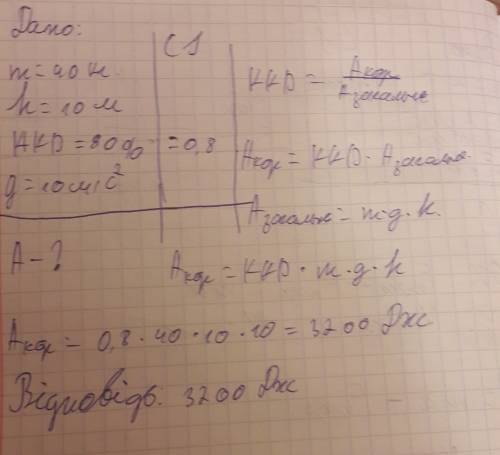 Дано:
СІ
m = 40 кг
h = 10 м
ККД = 80% = 0,8
g = 10 м/с²
А - ?
ККД = Акор / Азагальне
Акор = ККД · Азагальна
Азагальне = m·g·h.
Акор = ККД · m · g · h
Акор = 0,8 · 40 · 10 · 10 = 3200 Дж
Відповідь. 3200 Дж